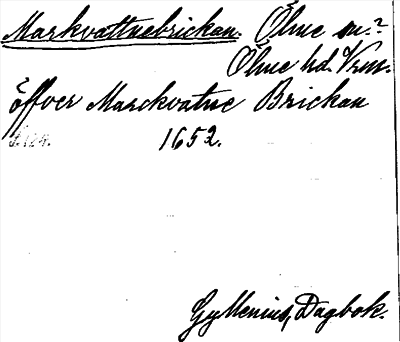 Markvattnebrickan. Ölme sn.?
Ölme hd. Vrm.
öffver Marckvatne Brickan
s. 124. 1652.
Gyllenius, Dagbok.